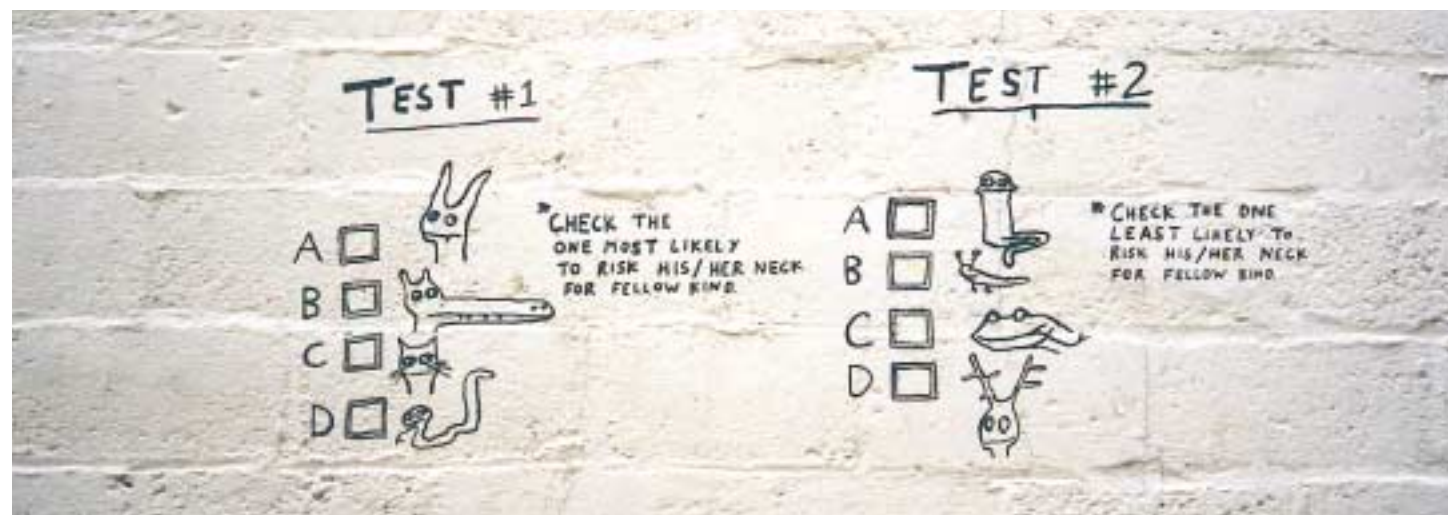 TEST #1
A
B
C
D
CHECK THE
ONE MOST LIKELY
TO RISK HIS/HER NECK
FOR FELLOW KIND
TEST #2
A
B
C
D
CHECK THE ONE
LEAST LIKELY TO
RISK HIS/HER NECK
FOR FELLOW KIND